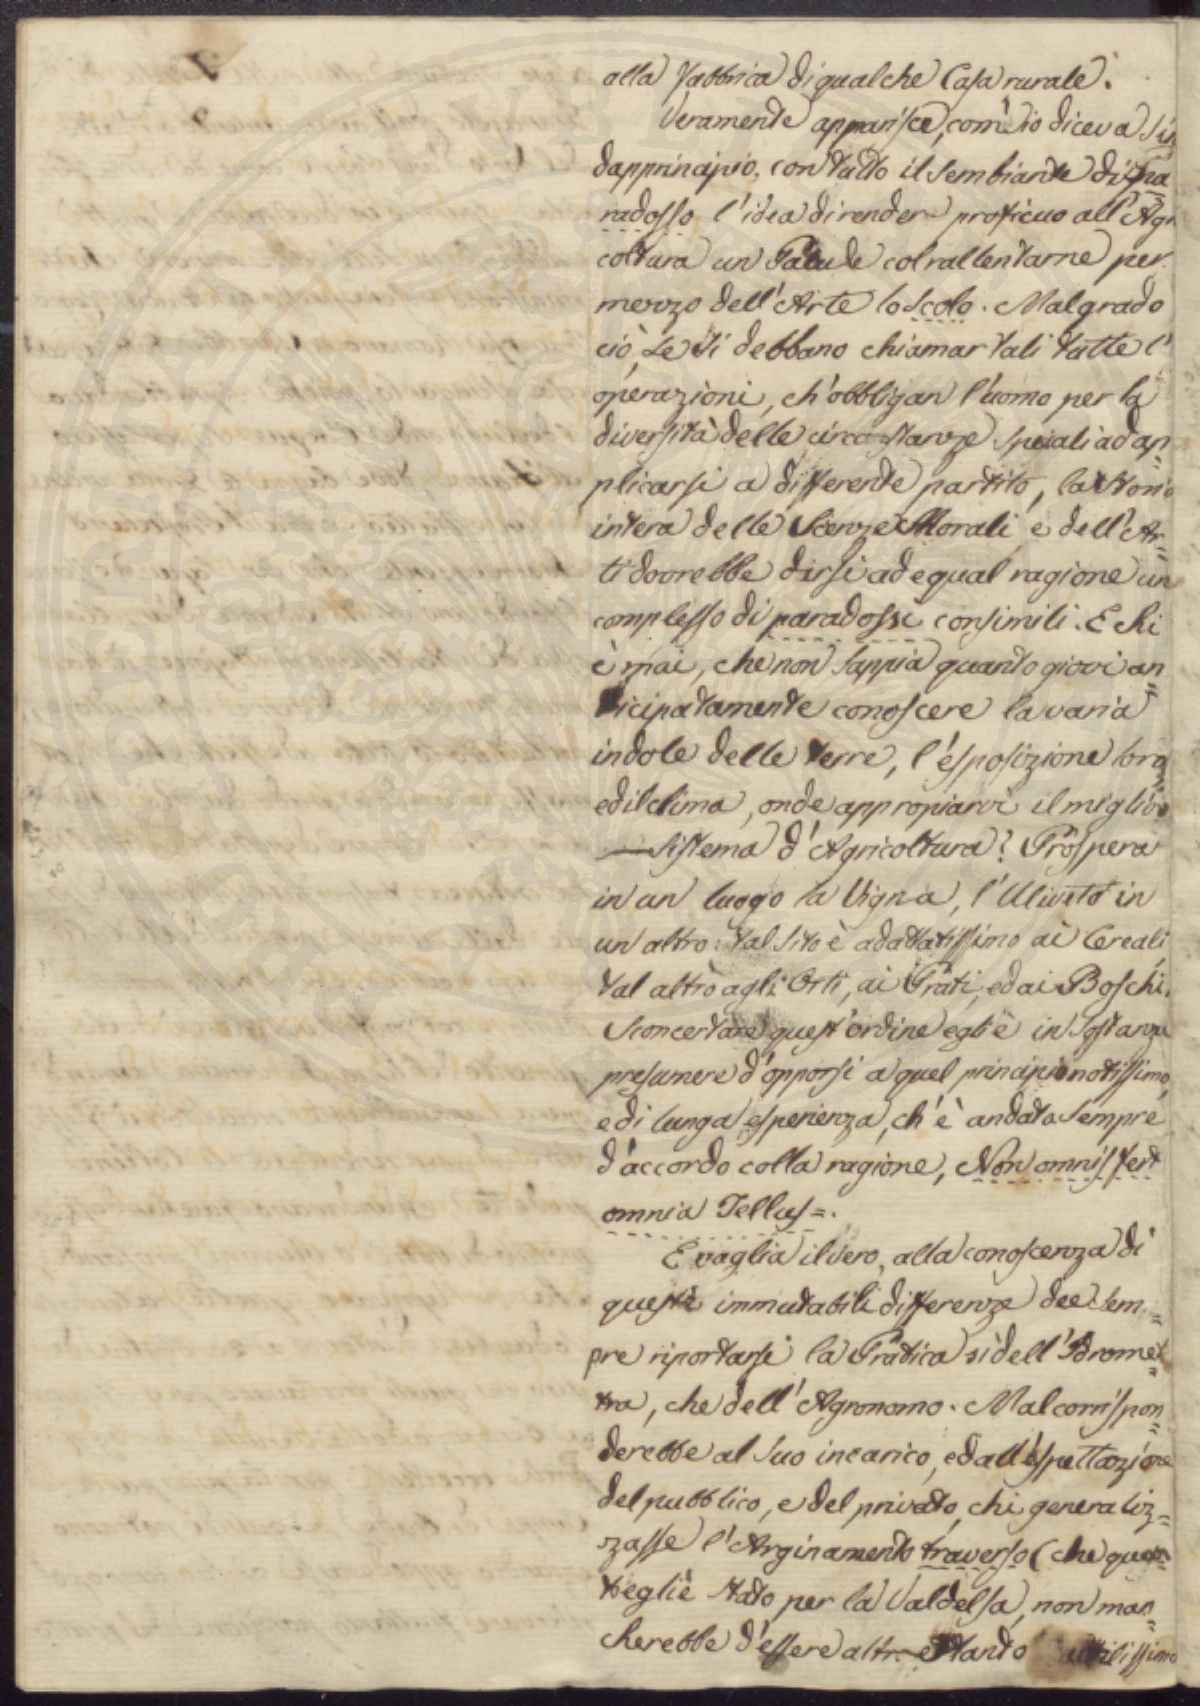 alla Fabbrica di qualche Casa rurale.
Veramente apparisce, com'io diceva sin
dapprincipio, con tutto il sembiante di Pa
radosso l'idea di render proficuo all'Agri
coltura un Palude col rallentarne per
mezzo dell'Arte lo Scolo. Malgrado
ciò, se si debbano chiamar tali tutte l'
operazioni, ch'obbligan l'uomo per la
diversità delle circostanze speciali ad ap=
plicarsi a differente partito, la storia
intera delle Scienze Morali e dell'Ar=
ti dovrebbe dirsi ad equal ragione un
complesso di paradossi consimili. E chi
è mai, che non sappia quanto giovi an=
ticipatamente conoscere la varia
indole delle terre, l'esposizione loro,
ed il clima, onde appropiarvi il miglior
sistema d'Agricoltura? Prospera
in un luogo la Vigna, l'Uliveto in
un altro: tal sito è adattatissimo ai Cereali,
tal altro agli Orti, ai Prati, ed ai Boschi.
Sconcertare quest'ordine egli è in sostanza
presumere d'opporsi a quel principio notissimo,
e di lunga esperienza, ch'è andato sempre
d'accordo colla ragione, Non omnis fert
omnia Tellus=.
E vaglia il vero, alla conoscenza di
queste immutabili differenze dee sem=
pre riportarsi la Pratica sì dell'Idrome=
tra, che dell'Agronomo. Mal corrispon=
derebbe al suo incarico, ed all'espettazione
del pubblico, e del privato, chi generaliz=
zasse l'Arginamento traverso (che ques=
t'egli è stato per la Valdelsa, non man=
cherebbe d'essere altrettanto utilissimo